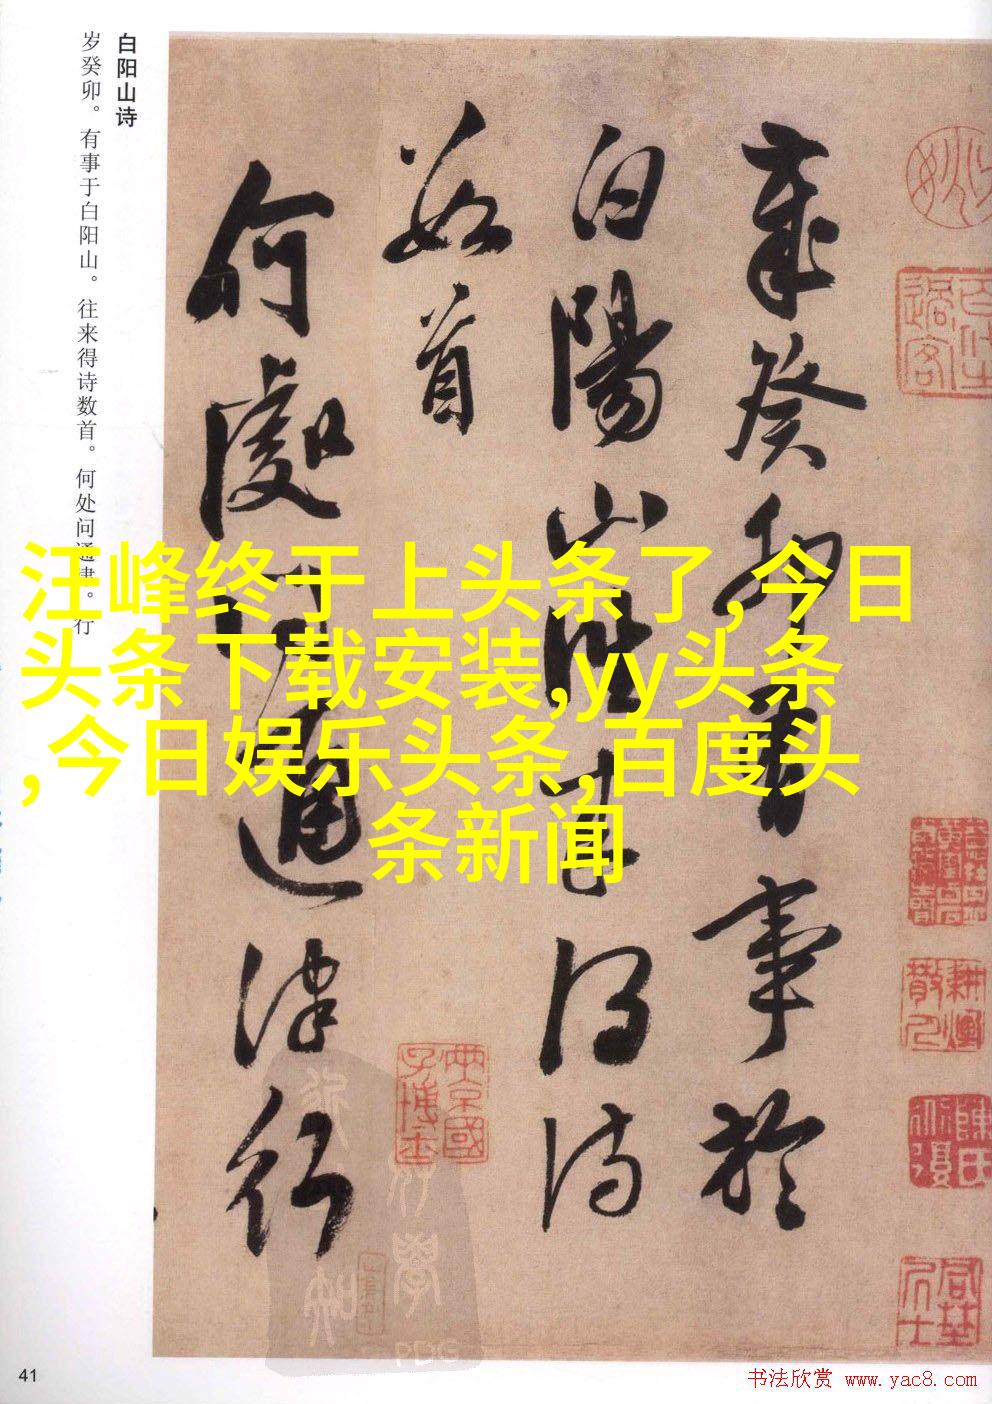 白阳山诗
岁癸卯。有事于白阳山。往来得诗数首。何处问通津。行
歲癸卯有事於
白陽山往來得詩
數首
何處問通津行
汪峰终于上头条了,今日
头条下载安装,yy头条
,今日娱乐头条,百度头
条新闻
41
书法欣赏 www.yac8.com